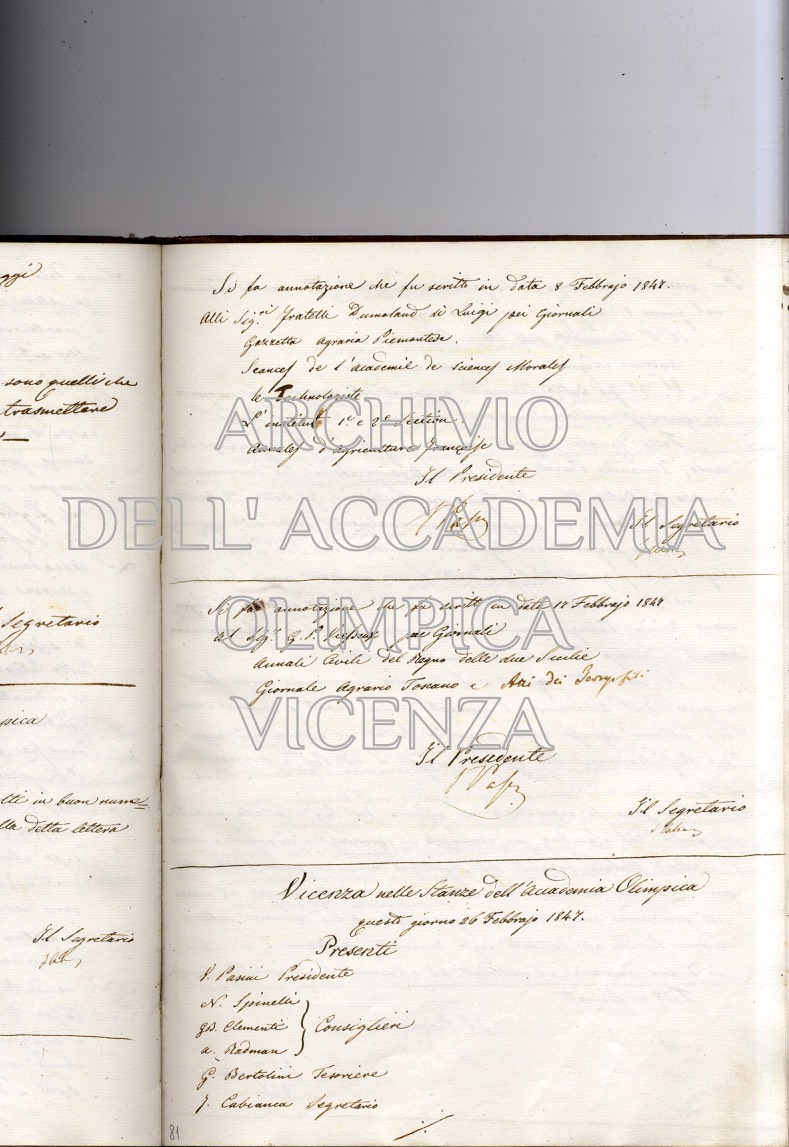 ggi
sono quelli che
trasmettere
Segretario
pica
tti in buon nume=
lla detta lettera
Il Segretario
Si fa annotazione che fu scritto in data 8 Febbrajo 1847.
Alli Sig.ri Fratelli Dumolard di Luigi pei Giornali
Gazzetta Agraria Piemontese.
Seances de l'academie de sciences Morales
le Technologiste
L'institut 1.e e 2e Section
Annales d'agriculture Française
Il Presidente
Il Segretario
Si fa annotazione che fu scritto in data 17 Febbrajo 1847
al Sig. G. P. pei Giornali
Annali Civili del Regno delle due Sicilie
Giornale Agrario Toscano e Atti dei Georgofili
Il Presidente
Il Segretario
Vicenza nelle Stanze dell'Accademia Olimpica
questo giorno 26 Febbrajo 1847.
Presenti
Pasini Presidente
N. Spinelli
GB. Clementi Consiglieri
A. Radman
G. Bertolini Tesoriere
J. Cabianca Segretario
81
ARCHIVIO
DELL' ACCADEMIA
OLIMPICA
VICENZA